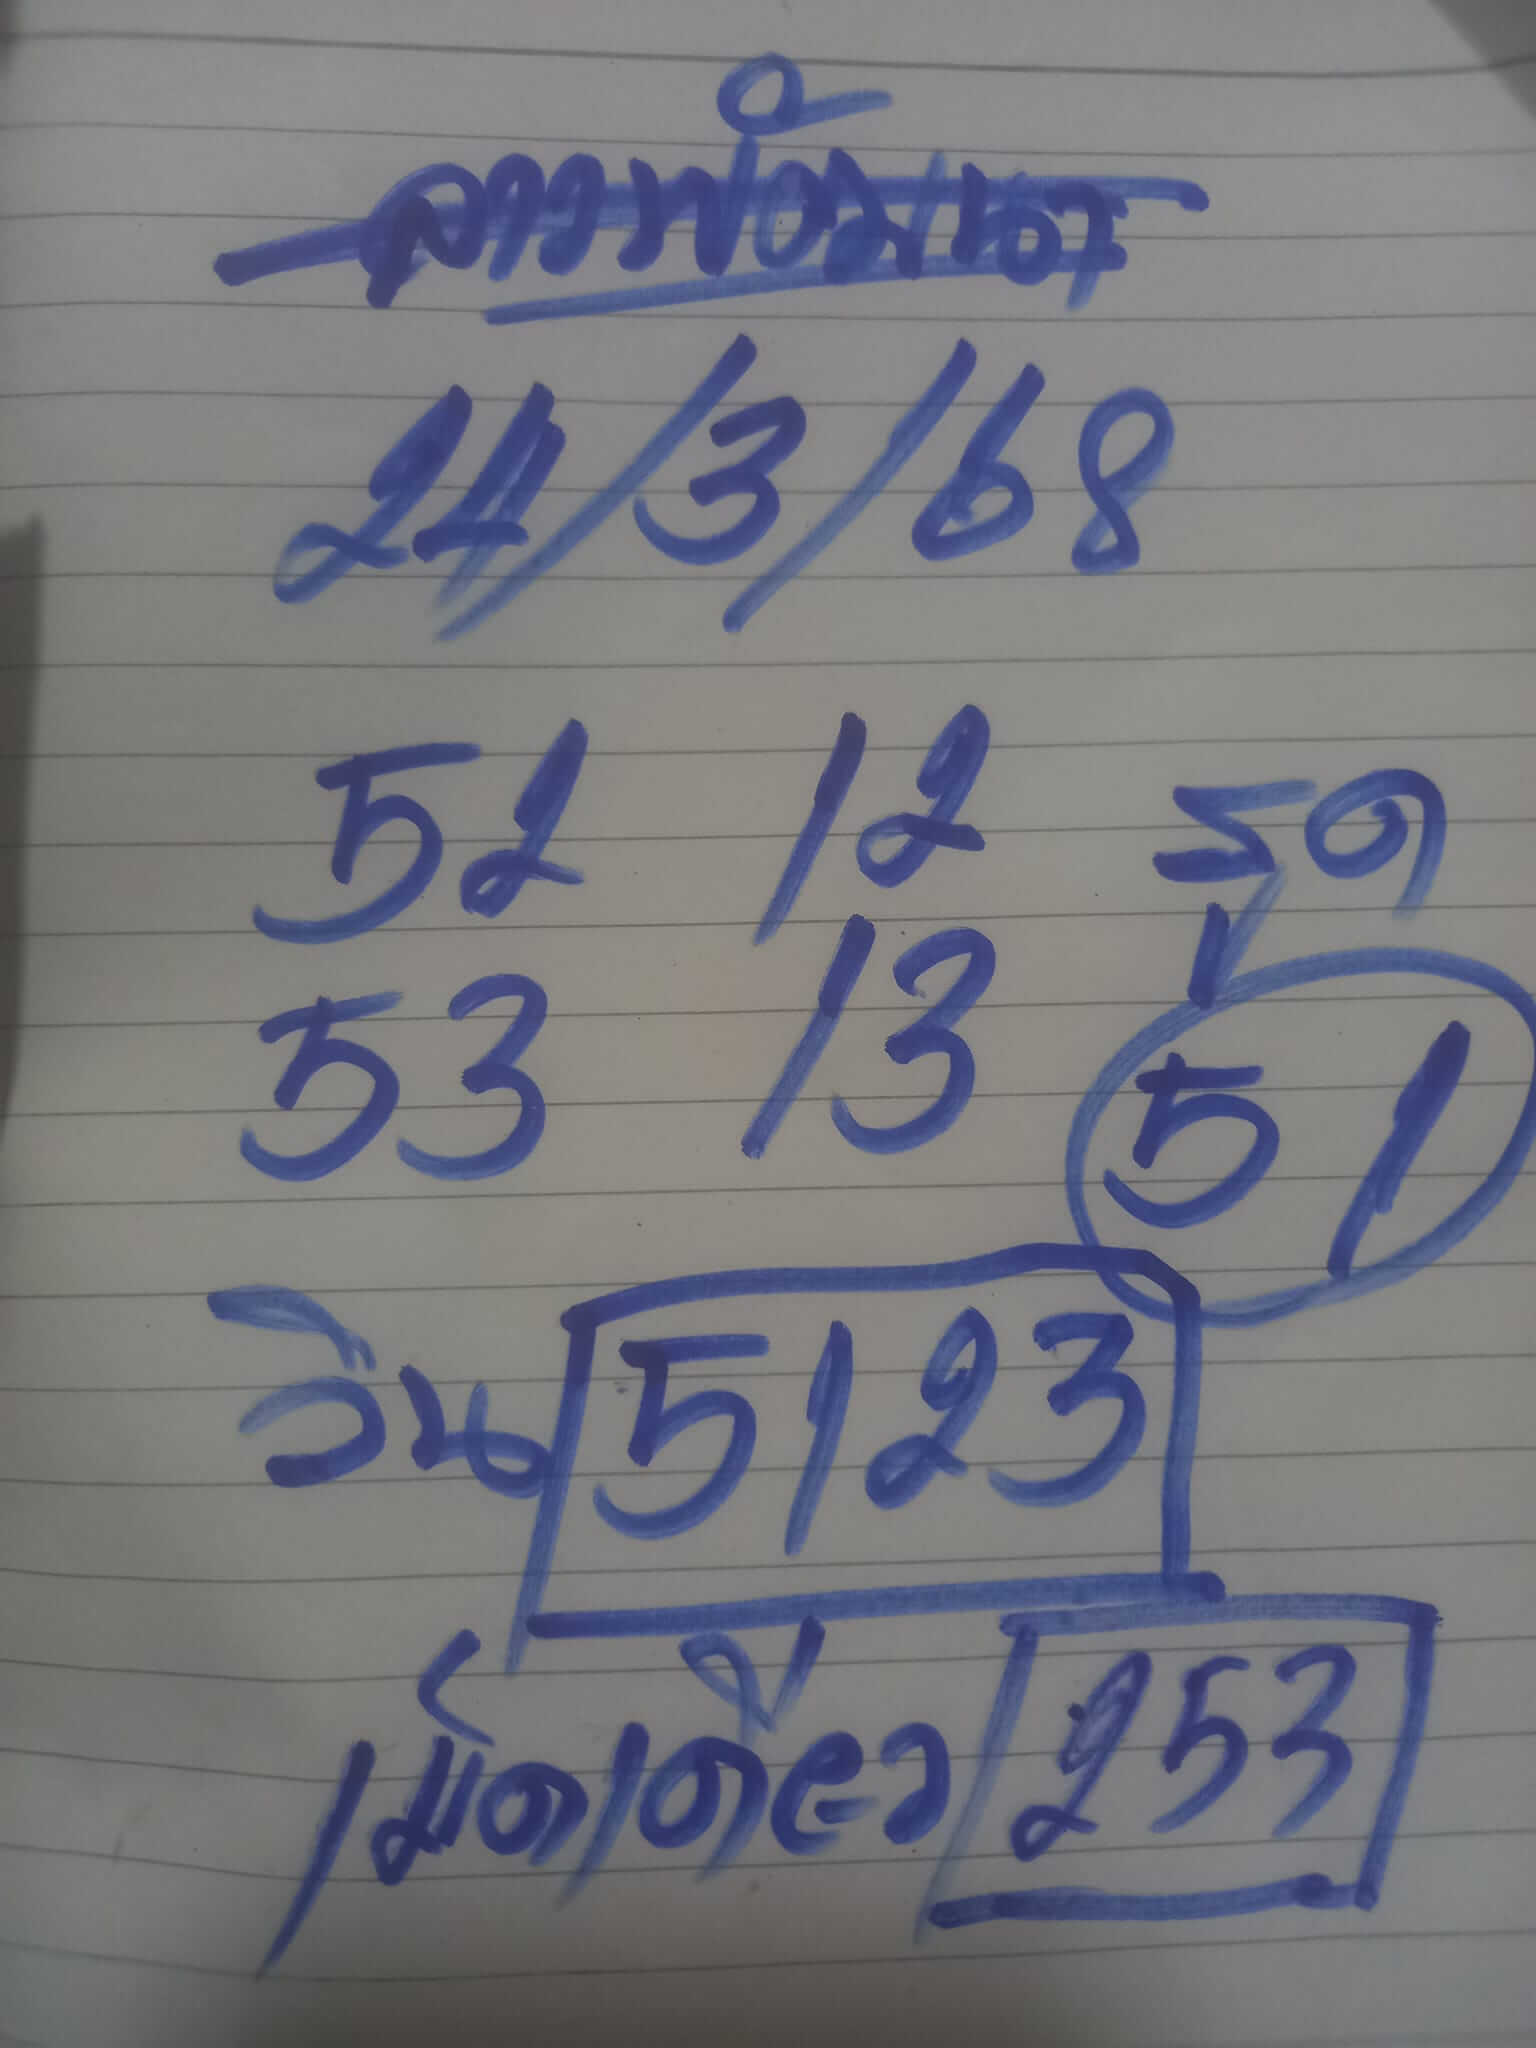 ลาวพัฒนา
24/3/68
52 12 รูด
53 13 51
วิน 5123
เม็ดเดียว 253